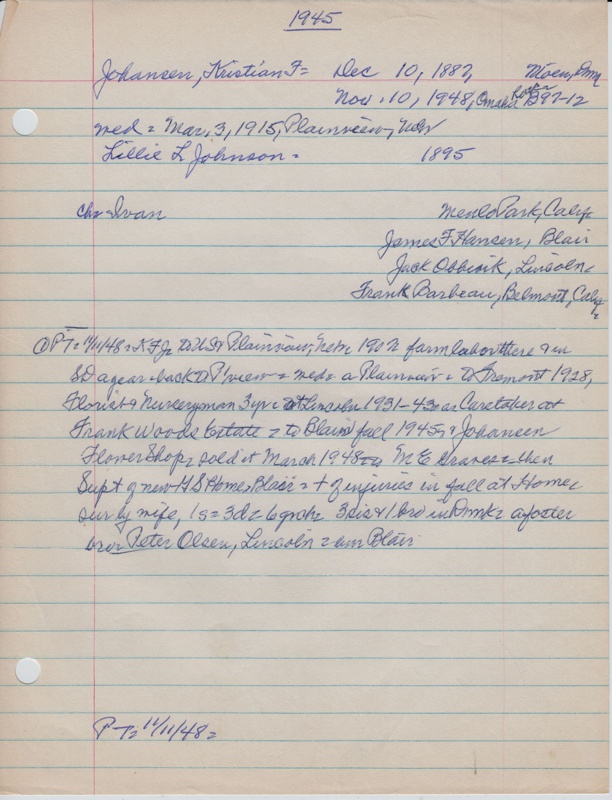 1945
Johansen, Kristian F = Dec 10, 1882, Moen, Dnm
Nov. 10, 1948, Omaha B97-12
med = Mar. 3, 1915, Plainview, Neb
Lillie L Johnson = 1895
ch = Ivan Menlo Park, Calif
James F. Hansen, Blair
Jack Obbink, Lincoln
Frank Barbeau, Belmont, Calif
PT = 11/11/48 = K F J to US & Plainview, Neb 190 farm labor there & in
SD a year = back to P'view = med = a Plainview = to Fremont 1928,
Florist & Nurseryman 3 yr = at Lincoln 1931-43 as Caretaker at
Frank Woods Estate = to Blair fall 1945 = Johansen
Flower Shop = sold it March 1948 to M E Graves = then
Supt of new H S Home, Blair = + of injuries in fall at Home =
sur by wife, 1 s = 3 d = 6 grch = 3 sis & 1 bro in Dnmk = a foster
bro = Peter Olsen, Lincoln = bur Blair
PT = 11/11/48 =